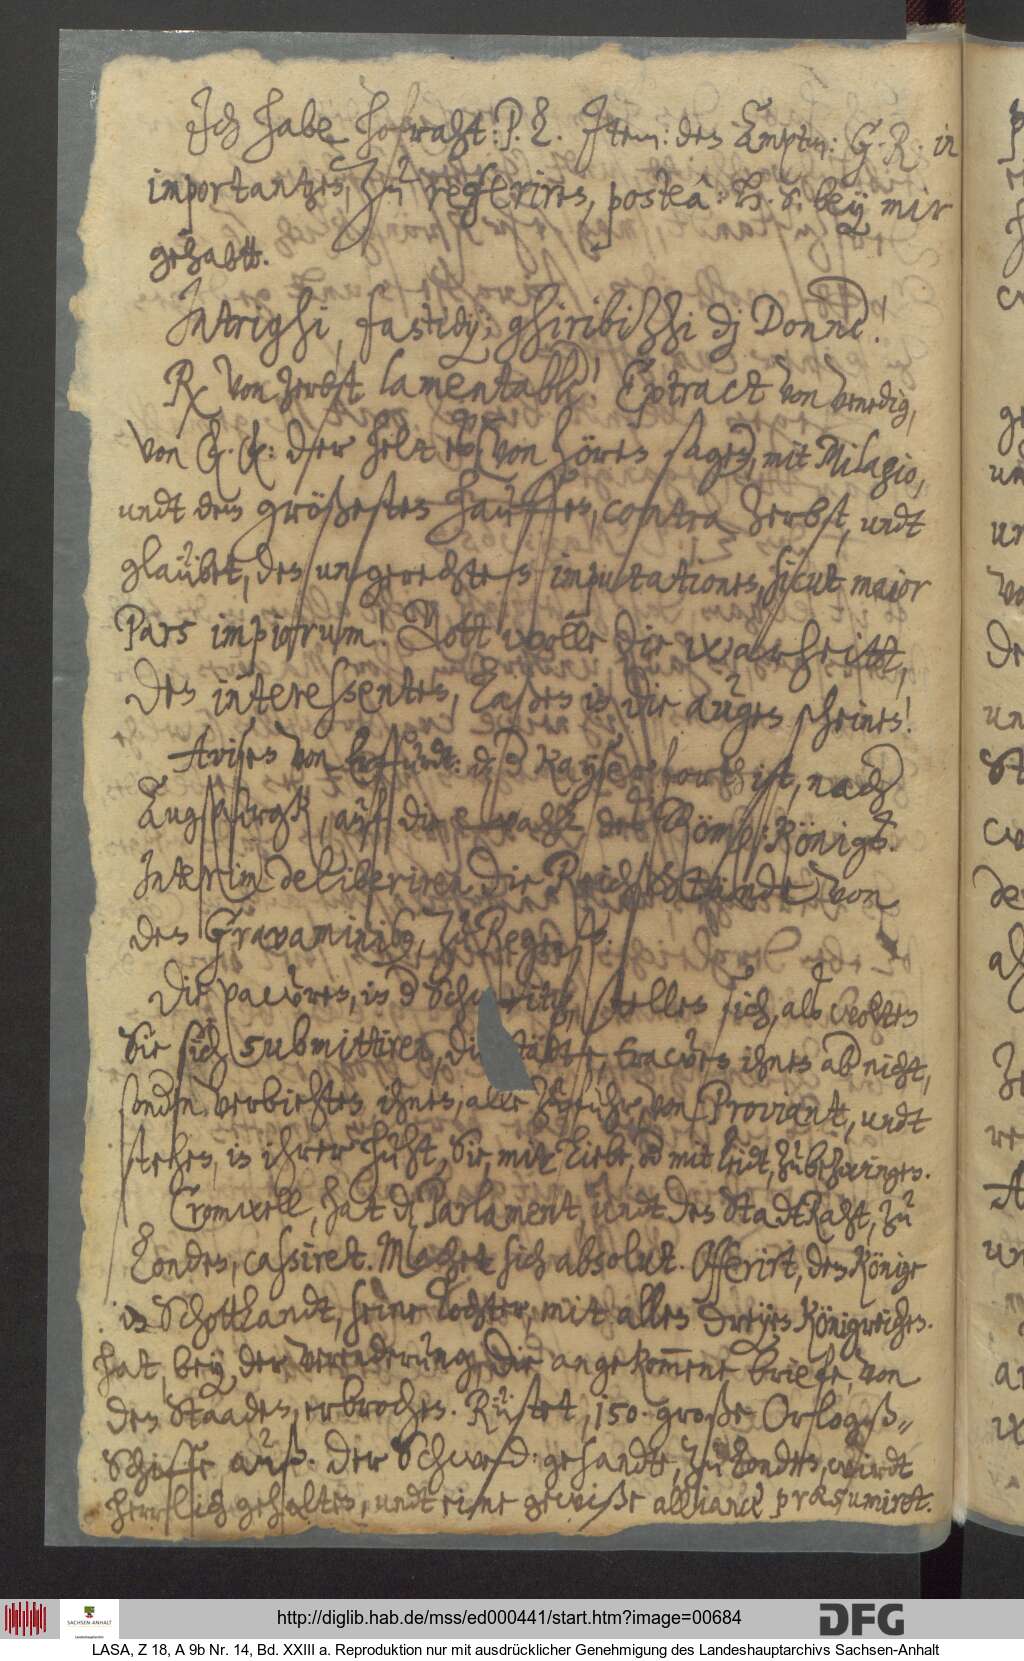 Ich habe Hofraht: P. L. Item: den Ampts: G. R. in
importantzen, zu referiren, posteà: H. S. bey mir
gehabtt.
Intrighj, fastidij; ghiribizzhi dj Donne!
Rx von Zerbst lamentable! Extract von Venedig,
von der Heldt von hören sagen, mit Milagio,
undt den größesten hauffen, contra Zerbst, undt
glaübet, den ungerechten imputationen, sicut maior
Pars impiorum! Gott wolle die warheitt,
den interessenten, laßen in die augen scheinen!
Avisen von Erffurdt: Kayser forth ist, nach
Augspurgk, auff die wahl des Römi: Königs.
Interim deliberiren die ReichsStände von
den Gravaminibus, zu Regenspurg.
Die pawren, in der Schweitz, stellen sich, als wolten
Sie sich submittiren, die städte, trawen ihnen aber nicht,
sondern verbiehten ihnen, alle zufuhr, von Proviant, undt
stehen, in ihrer huht, Sie, mit liebe, oder mit leidt, zubezwingen.
Cromwell, hat das Parlament, undt den StadtRaht, zu
Londen, cassiret. Machet sich absolut. Offerirt, dem Könige
in Schottlandt, seine Tochter, mit allen dreyen Königreichen.
hat, bey der verenderung, die angekommene briefe, von
den Staaden, erbrochen. Rüstet, 150. große Orlogß„
Schiffe auß. Der Schwed: gesandte, zu Londen, wirdt
herrlich gehalten, undt eine gewiße alliance præsumiret.
http://diglib.hab.de/mss/ed000441/start.htm?image=00684
SACHSEN-ANHALT
DFG
LASA, Z 18, A 9b Nr. 14, Bd. XXIII a. Reproduktion nur mit ausdrücklicher Genehmigung des Landeshauptarchivs Sachsen-Anhalt